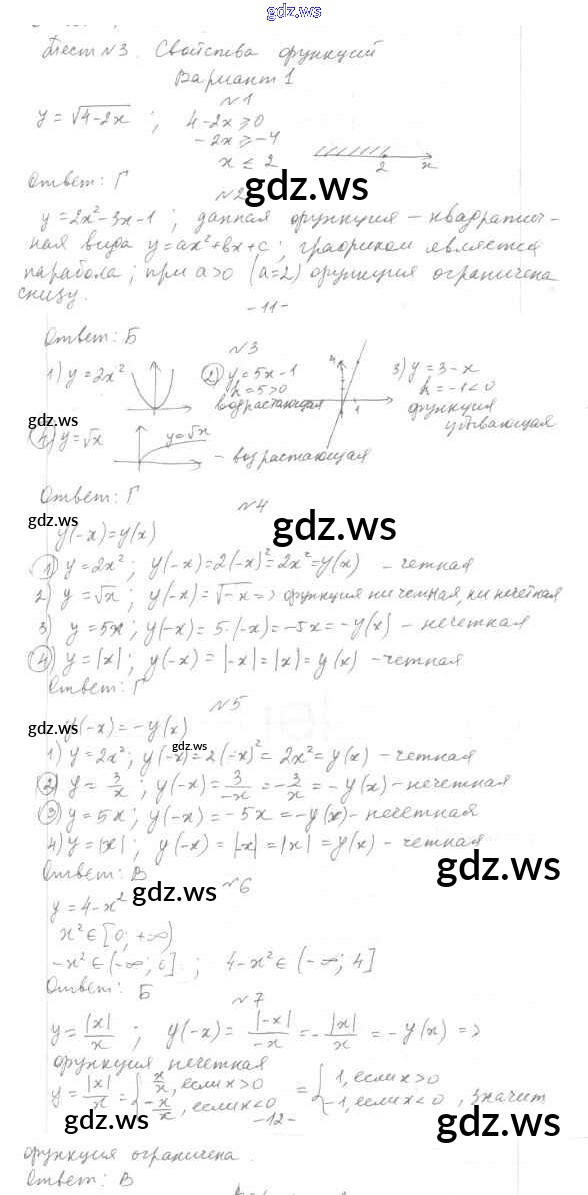 gdz.ws
Тест №3. Свойства функций
Вариант 1
№1
y = √(4-2x) ; 4-2x ≥ 0
-2x ≥ -4
x ≤ 2
2 x
Ответ: Г
gdz.ws
№2
y = 2x² - 3x - 1 ; данная функция - квадратич-
ная вида y = ax² + bx + c ; графиком является
парабола ; при a > 0 (a = 2) функция ограничена
снизу.
-11-
Ответ: Б
№3
1) y = 2x² 2) y = 5x - 1 3) y = 3 - x
k = 5 > 0 k = -1 < 0
возрастающая 4 1 функция
убывающая
gdz.ws
4) y = √x y = √x - возрастающая
Ответ: Г
№4
gdz.ws
gdz.ws
y(-x) = y(x)
1) y = 2x² ; y(-x) = 2(-x)² = 2x² = y(x) - четная
2) y = √x ; y(-x) = √-x => функция ни четная, ни нечетная
3) y = 5x ; y(-x) = 5·(-x) = -5x = -y(x) - нечетная
4) y = |x| ; y(-x) = |-x| = |x| = y(x) - четная
Ответ: Г
№5
gdz.ws
y(-x) = -y(x)
gdz.ws
1) y = 2x² ; y(-x) = 2(-x)² = 2x² = y(x) - четная
2) y = 3/x ; y(-x) = 3/-x = -3/x = -y(x) - нечетная
3) y = 5x ; y(-x) = -5x = -y(x) - нечетная
4) y = |x| ; y(-x) = |-x| = |x| = y(x) - четная
Ответ: В
gdz.ws
gdz.ws
№6
y = 4 - x²
x² ∈ [0; +∞)
-x² ∈ (-∞; 0] ; 4 - x² ∈ (-∞; 4]
Ответ: Б
№7
y = |x|/x ; y(-x) = |-x|/-x = -|x|/x = -y(x) =>
функция нечетная
y = |x|/x = { x/x, если x > 0 = { 1, если x > 0
-x/x, если x < 0 -1, если x < 0 , значит
gdz.ws
-12-
gdz.ws
функция ограничена.
Ответ: В